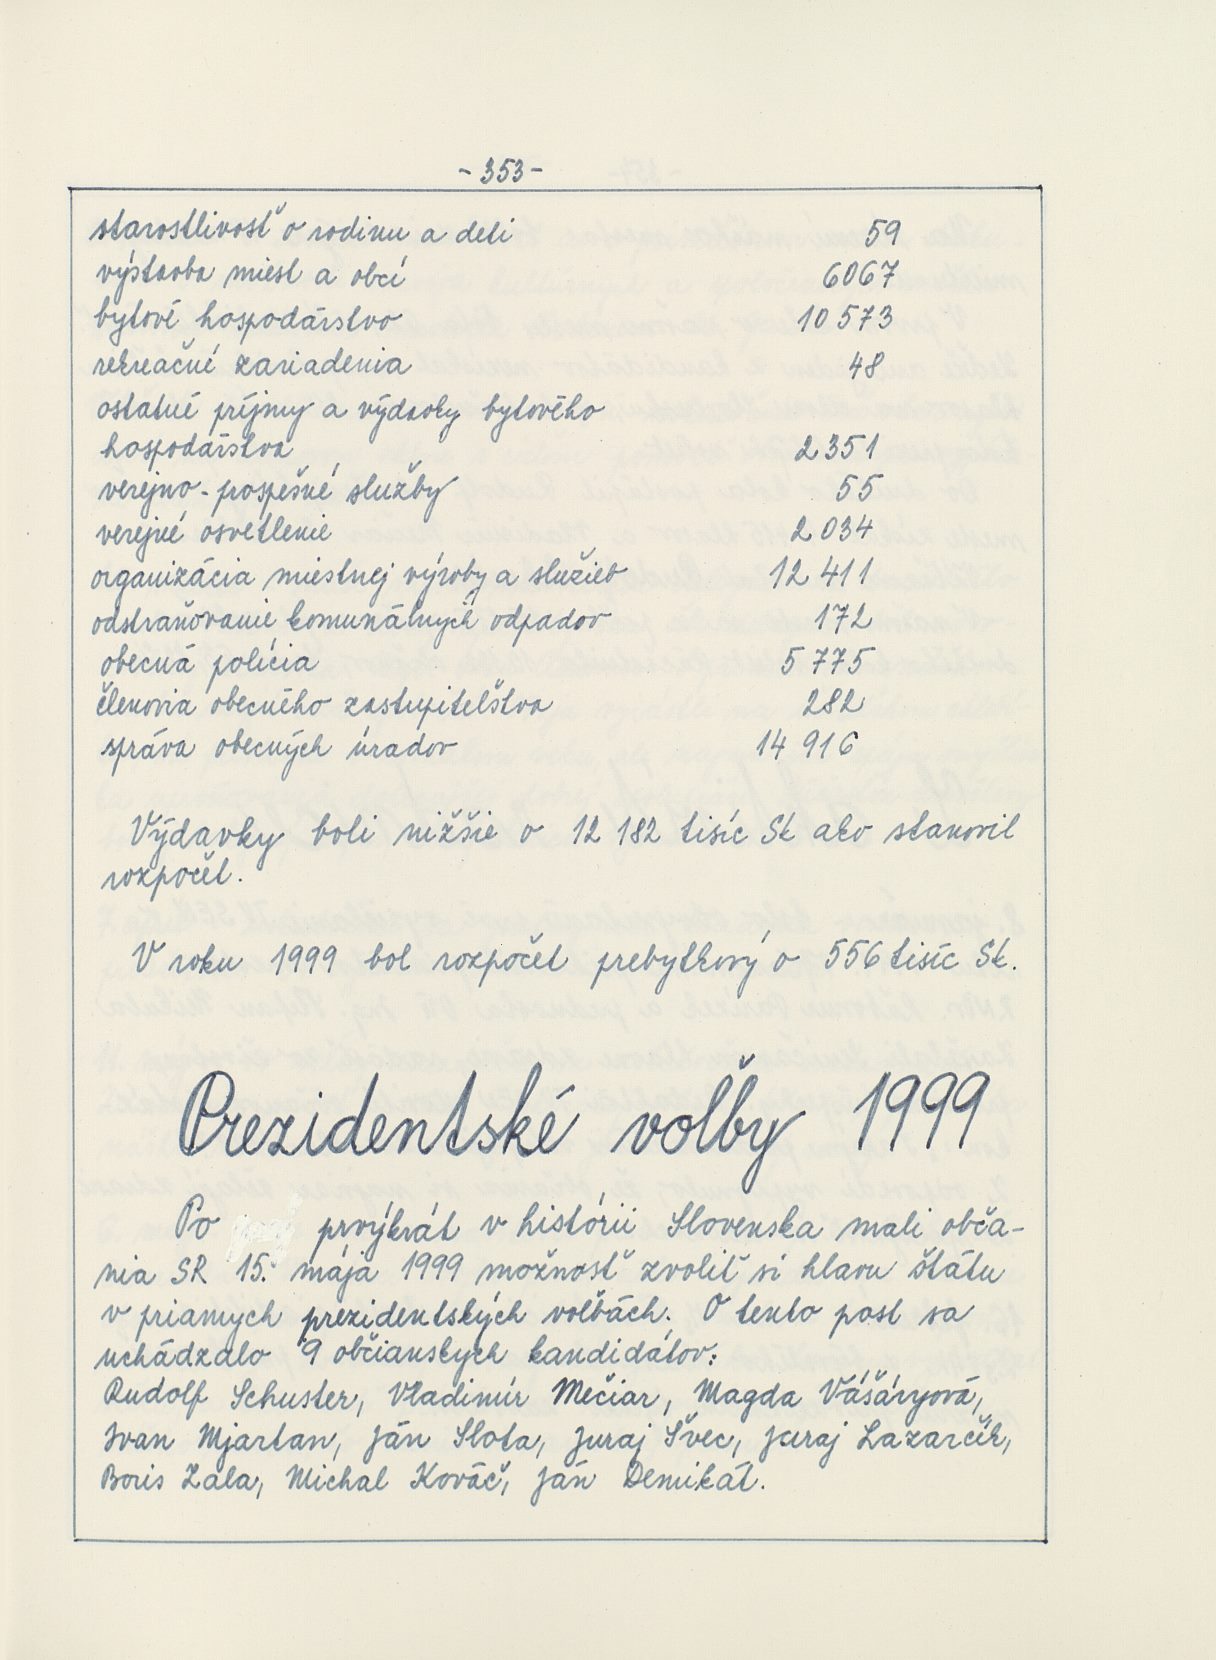 - 353 -
starostlivosť o rodinu a deti 59
výstavba miest a obcí 6067
bytové hospodárstvo 10 573
rekreačné zariadenia 48
ostatné príjmy a výdavky bytového
hospodárstva 2 351
verejno-prospešné služby 55
verejné osvetlenie 2 034
organizácia miestnej výroby a služieb 12 411
odstraňovanie komunálnych odpadov 172
obecná polícia 5 775
členovia obecného zastupiteľstva 282
správa obecných úradov 14 916
Výdavky boli nižšie o 12 182 tisíc Sk ako stanovil
rozpočet.
V roku 1999 bol rozpočet prebytkový o 556 tisíc Sk.
Prezidentské voľby 1999
Po prvýkrát v histórii Slovenska mali obča-
nia SR 15. mája 1999 možnosť zvoliť si hlavu štátu
v priamych prezidentských voľbách. O tento post sa
uchádzalo 9 občianskych kandidátov:
Rudolf Schuster, Vladimír Mečiar, Magda Vášáryová,
Ivan Mjartan, Ján Slota, Juraj Švec, Juraj Lazarčík,
Boris Zala, Michal Kováč, Ján Demikát.